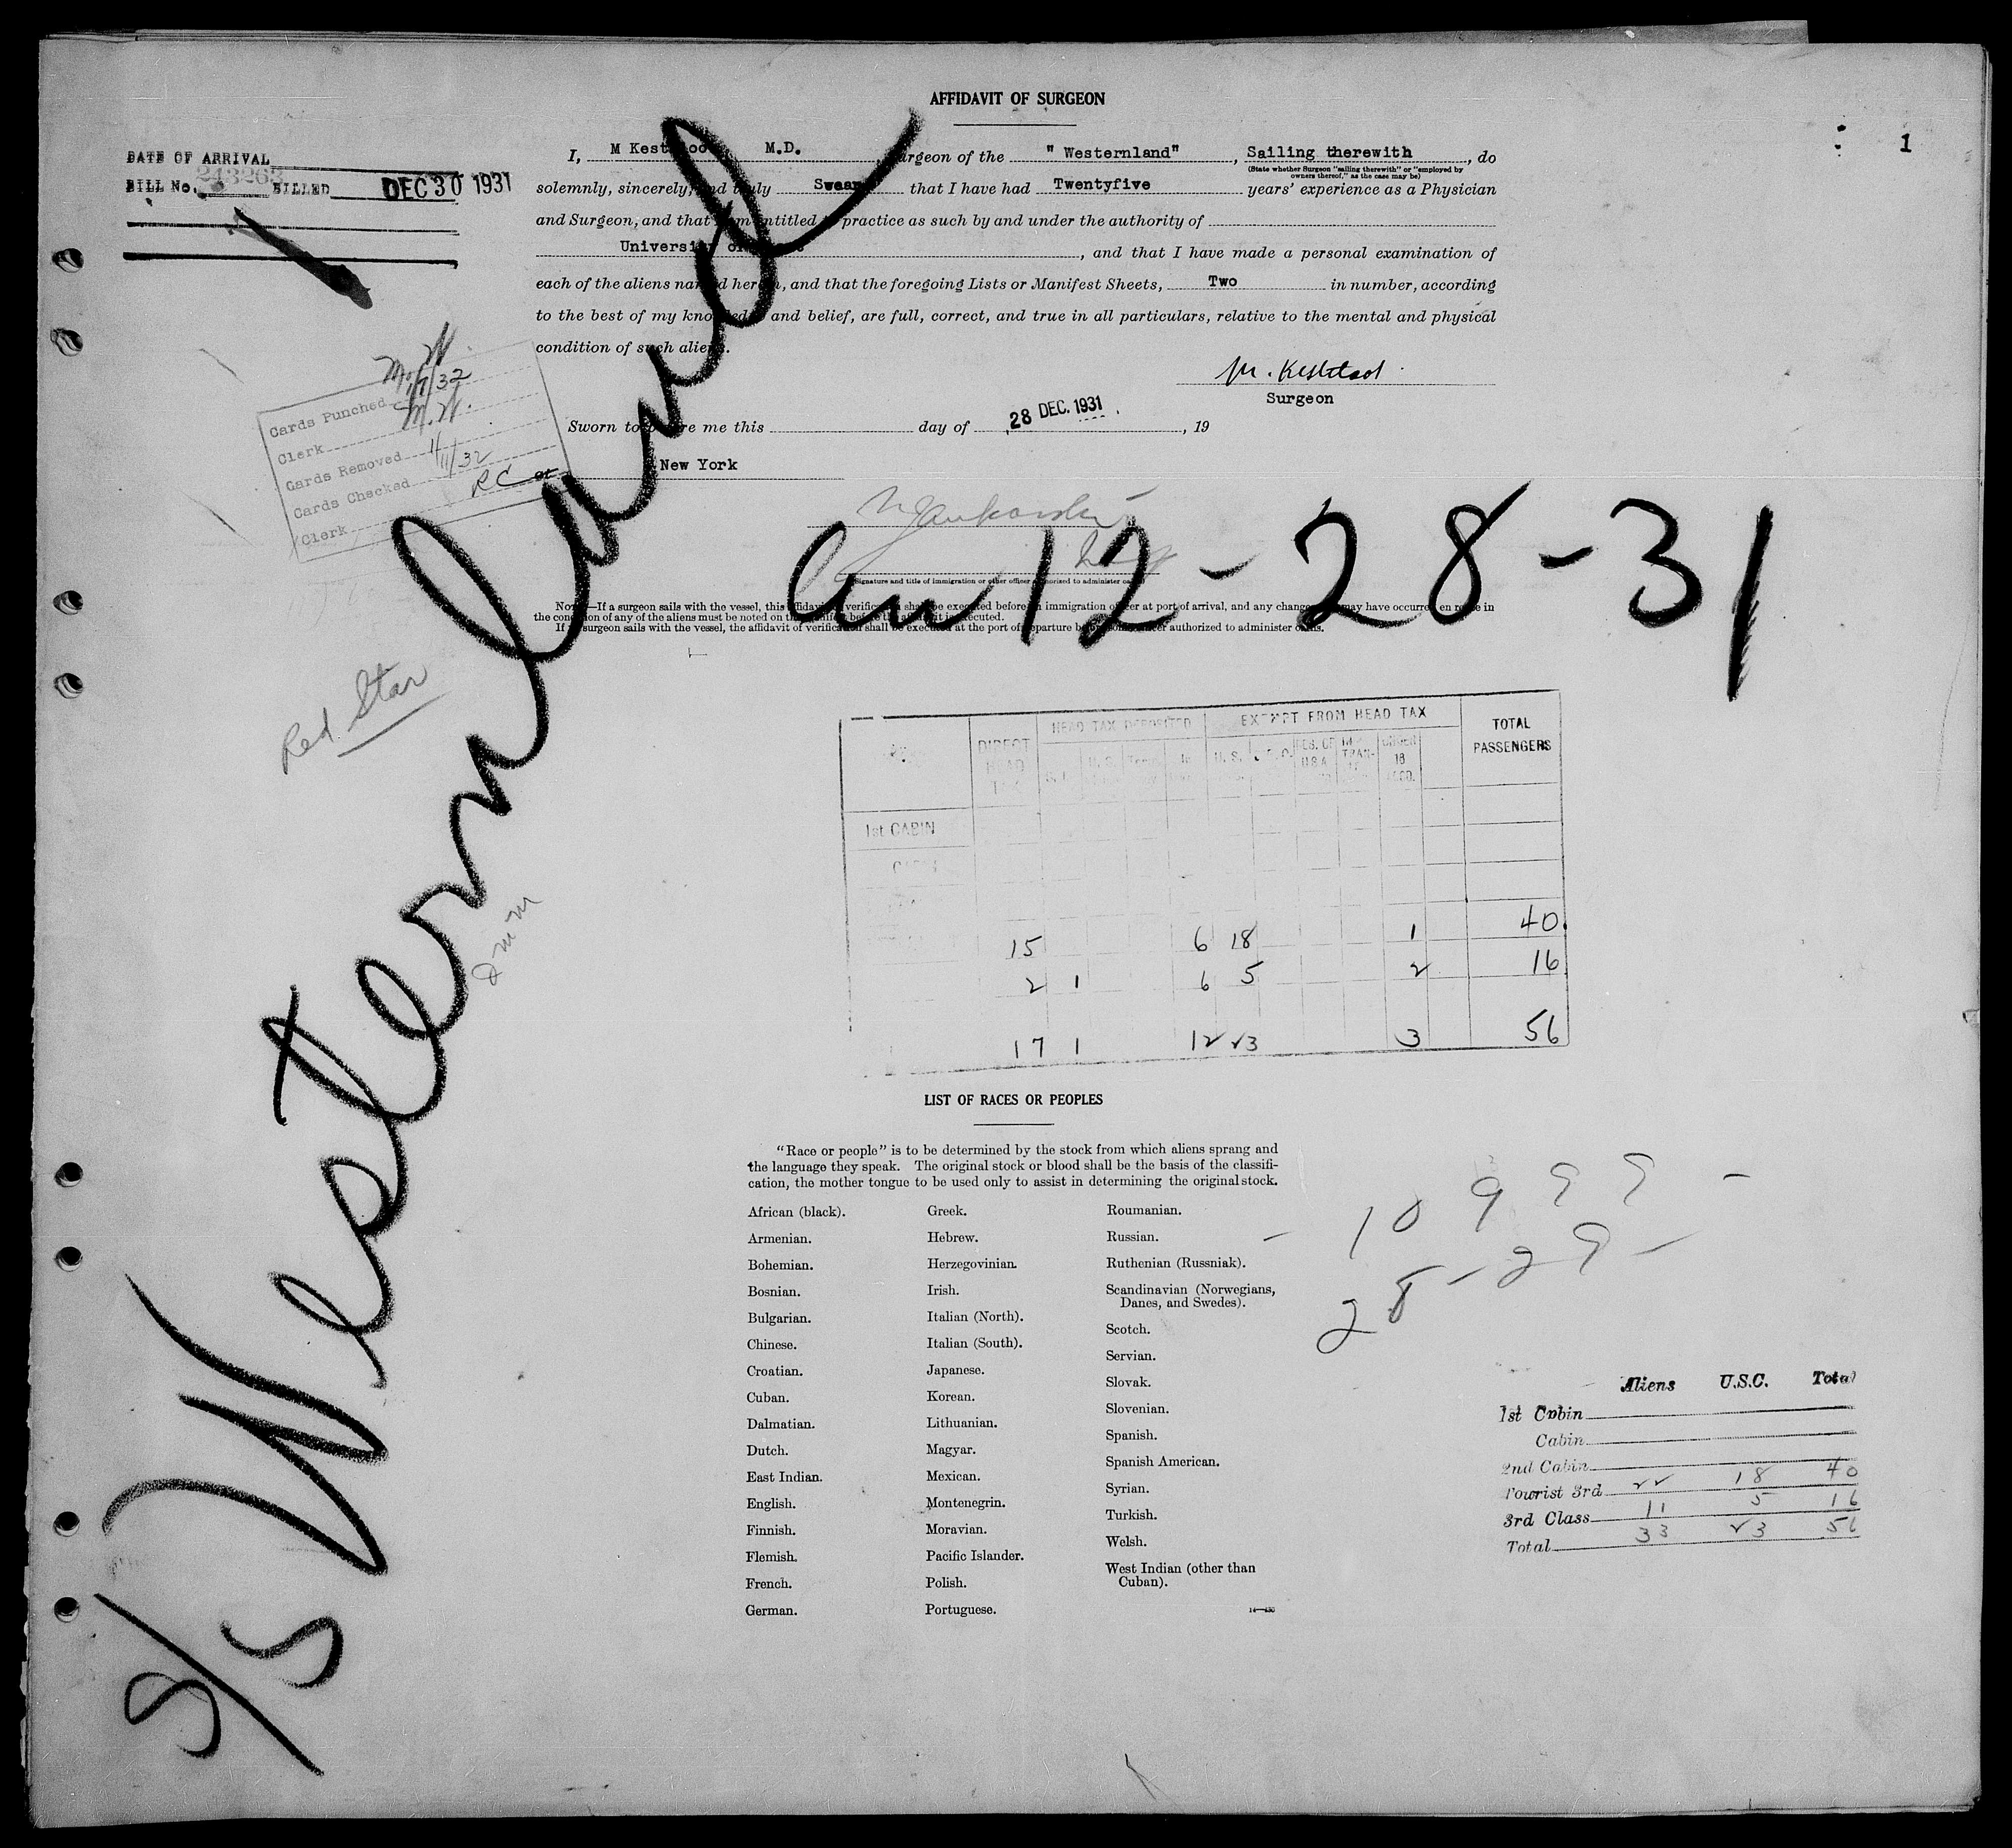 AFFIDAVIT OF SURGEON
1
DATE OF ARRIVAL
BILL No. 243263 BILLED DEC 30 1931
I, M Kest M.D. urgeon of the "Westernland", Sailing therewith, do
(State whether Surgeon "sailing therewith" or "employed by owners thereof," as the case may be)
solemnly, sincerely, and truly Swear that I have had Twentyfive years' experience as a Physician
and Surgeon, and that I am entitled to practice as such by and under the authority of
University of , and that I have made a personal examination of
each of the aliens named herein, and that the foregoing Lists or Manifest Sheets, Two in number, according
to the best of my knowledge and belief, are full, correct, and true in all particulars, relative to the mental and physical
condition of such aliens.
Surgeon
Sworn to before me this day of 28 DEC. 1931, 19
New York
Cards Punched M.W. 1/7/32
Clerk M.W.
Cards Removed
Cards Checked 1/11/32
Clerk RC
S/S Westernland
12-28-31
Signature and title of immigration or other officer authorized to administer oaths
Note.—If a surgeon sails with the vessel, this affidavit of verification shall be executed before an immigration officer at port of arrival, and any changes may have occurred en route in
the condition of any of the aliens must be noted on the manifest before the affidavit is executed.
If surgeon sails with the vessel, the affidavit of verification shall be executed at the port of departure before authorized to administer oaths.
Red Star
HEAD TAX DEPOSITED EXEMPT FROM HEAD TAX TOTAL PASSENGERS
DIRECT HEAD TAX U.S. RES. OF U.S.A. TRAN- UNDER 16 ACCD.
1st CABIN
CABIN
15 6 18 1 40
2 1 6 5 2 16
17 1 12 23 3 56
LIST OF RACES OR PEOPLES
"Race or people" is to be determined by the stock from which aliens sprang and
the language they speak. The original stock or blood shall be the basis of the classifi-
cation, the mother tongue to be used only to assist in determining the original stock.
African (black).
Armenian.
Bohemian.
Bosnian.
Bulgarian.
Chinese.
Croatian.
Cuban.
Dalmatian.
Dutch.
East Indian.
English.
Finnish.
Flemish.
French.
German.
Greek.
Hebrew.
Herzegovinian.
Irish.
Italian (North).
Italian (South).
Japanese.
Korean.
Lithuanian.
Magyar.
Mexican.
Montenegrin.
Moravian.
Pacific Islander.
Polish.
Portuguese.
Roumanian.
Russian.
Ruthenian (Russniak).
Scandinavian (Norwegians,
Danes, and Swedes).
Scotch.
Servian.
Slovak.
Slovenian.
Spanish.
Spanish American.
Syrian.
Turkish.
Welsh.
West Indian (other than
Cuban).
- 10999 -
28-29-
Aliens U.S.C. Total
1st Cabin
Cabin
2nd Cabin
Tourist 3rd 22 18 40
3rd Class 11 5 16
Total 33 23 56